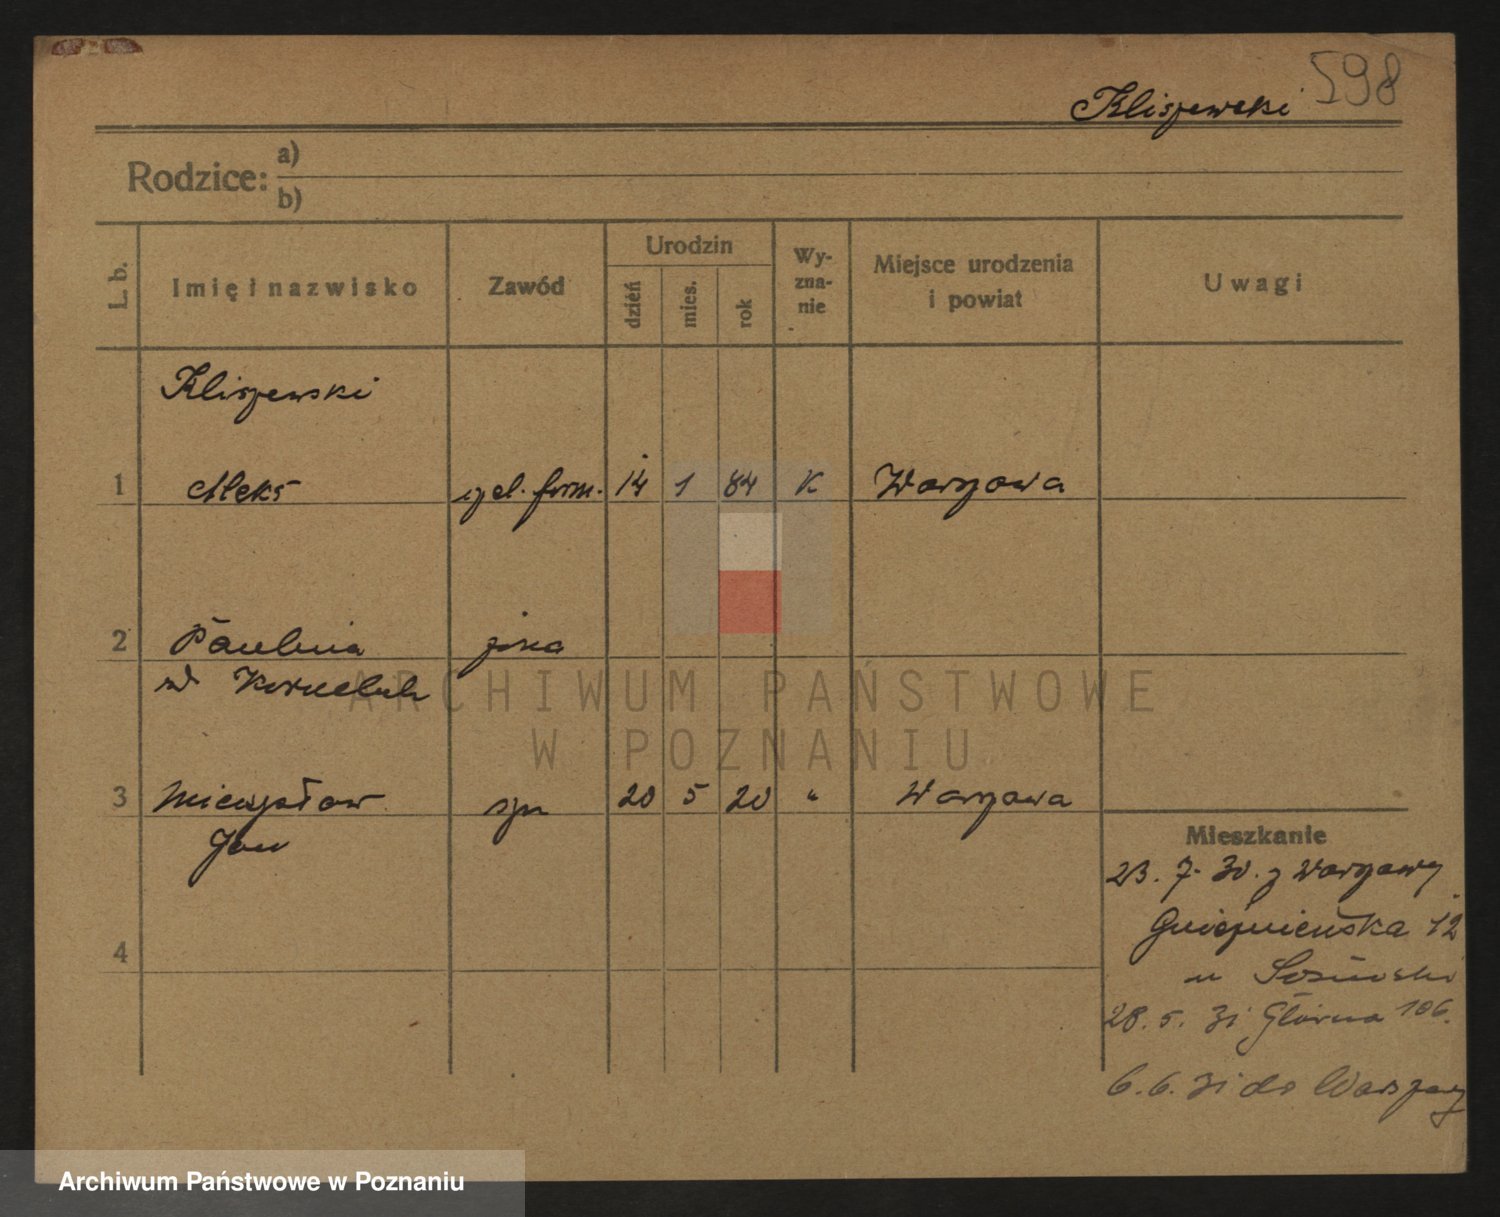 598
Kliszewski
Rodzice: a)
b)
L. b.
Imię i nazwisko
Zawód
Urodzin
dzień
mies.
rok
Wy-
zna-
nie
Miejsce urodzenia
i powiat
Uwagi
Kliszewski
1 Aleks form. 14 1 84 K Warszawa
2 Paulina żona
3 Mieczysław syn 20 5 20 " Warszawa
Jan
4
Mieszkanie
23. 7. 30. z Warszawy
Gnieźnieńska 12
u
28. 5. 31 Główna 106.
6. 6. 31 do Warszawy
ARCHIWUM PAŃSTWOWE
W POZNANIU
Archiwum Państwowe w Poznaniu